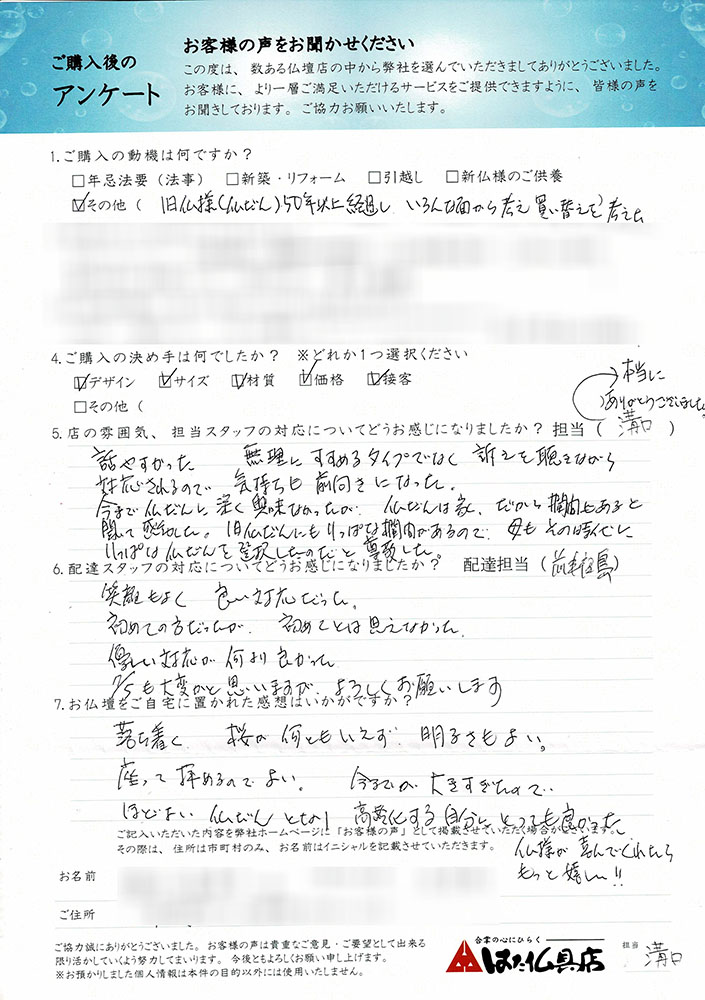 ご購入後の
アンケート
お客様の声をお聞かせください
この度は、数ある仏壇店の中から弊社を選んでいただきましてありがとうございました。
お客様に、より一層ご満足いただけるサービスをご提供できますように、皆様の声を
お聞きしております。ご協力お願いいたします。
1.ご購入の動機は何ですか?
□年忌法要(法事) □新築・リフォーム □引越し □新仏様のご供養
☑その他( 旧仏様(仏だん)50年以上経過し いろんな面から考え買い替えを考えた
4.ご購入の決め手は何でしたか? ※どれか1つ選択ください
☑デザイン ☑サイズ ☑材質 ☑価格 ☑接客
□その他(
本当に
ありがとうございました。
5.店の雰囲気、担当スタッフの対応についてどうお感じになりましたか? 担当(溝口)
話やすかった 無理にすすめるタイプでなく 訴えを聴きながら
対応されるので 気持ちも前向きになった。
今まで仏だんに深く興味なかったが 仏だんは家、だから欄間もあると
聞いて感動した。旧仏だんにもりっぱな欄間があるので 母もその時代に
りっぱな仏だんを選択したのだと尊敬した。
6.配達スタッフの対応についてどうお感じになりましたか? 配達担当(
笑顔もよく 良い対応だった。
初めての方だったが、初めてとは思えなかった。
優しい対応が何より良かった
も大変かと思いますが、よろしくお願いします
7.お仏壇をご自宅に置かれた感想はいかがですか?
落ち着く 桜が何ともいえず 明るさもよい。
座って拝めるのでよい。 今までが大きすぎたので…
ほどよい仏だんとなり 高齢化する自分にとっても良かった
ご記入いただいた内容を弊社ホームページに「お客様の声」として掲載させていただく場合がございます。
その際は、住所は市町村のみ、お名前はイニシャルを記載させていただきます。
仏様が喜んでくれたら
もっと嬉しい!!
お名前
ご住所
ご協力誠にありがとうございました。お客様の声は貴重なご意見・ご要望として出来る
限り活かしていくよう努力してまいります。今後ともよろしくお願い申し上げます。
※お預かりしました個人情報は本件の目的以外には使用いたしません。
合掌の心にひらく
はた仏具店
担当 溝口